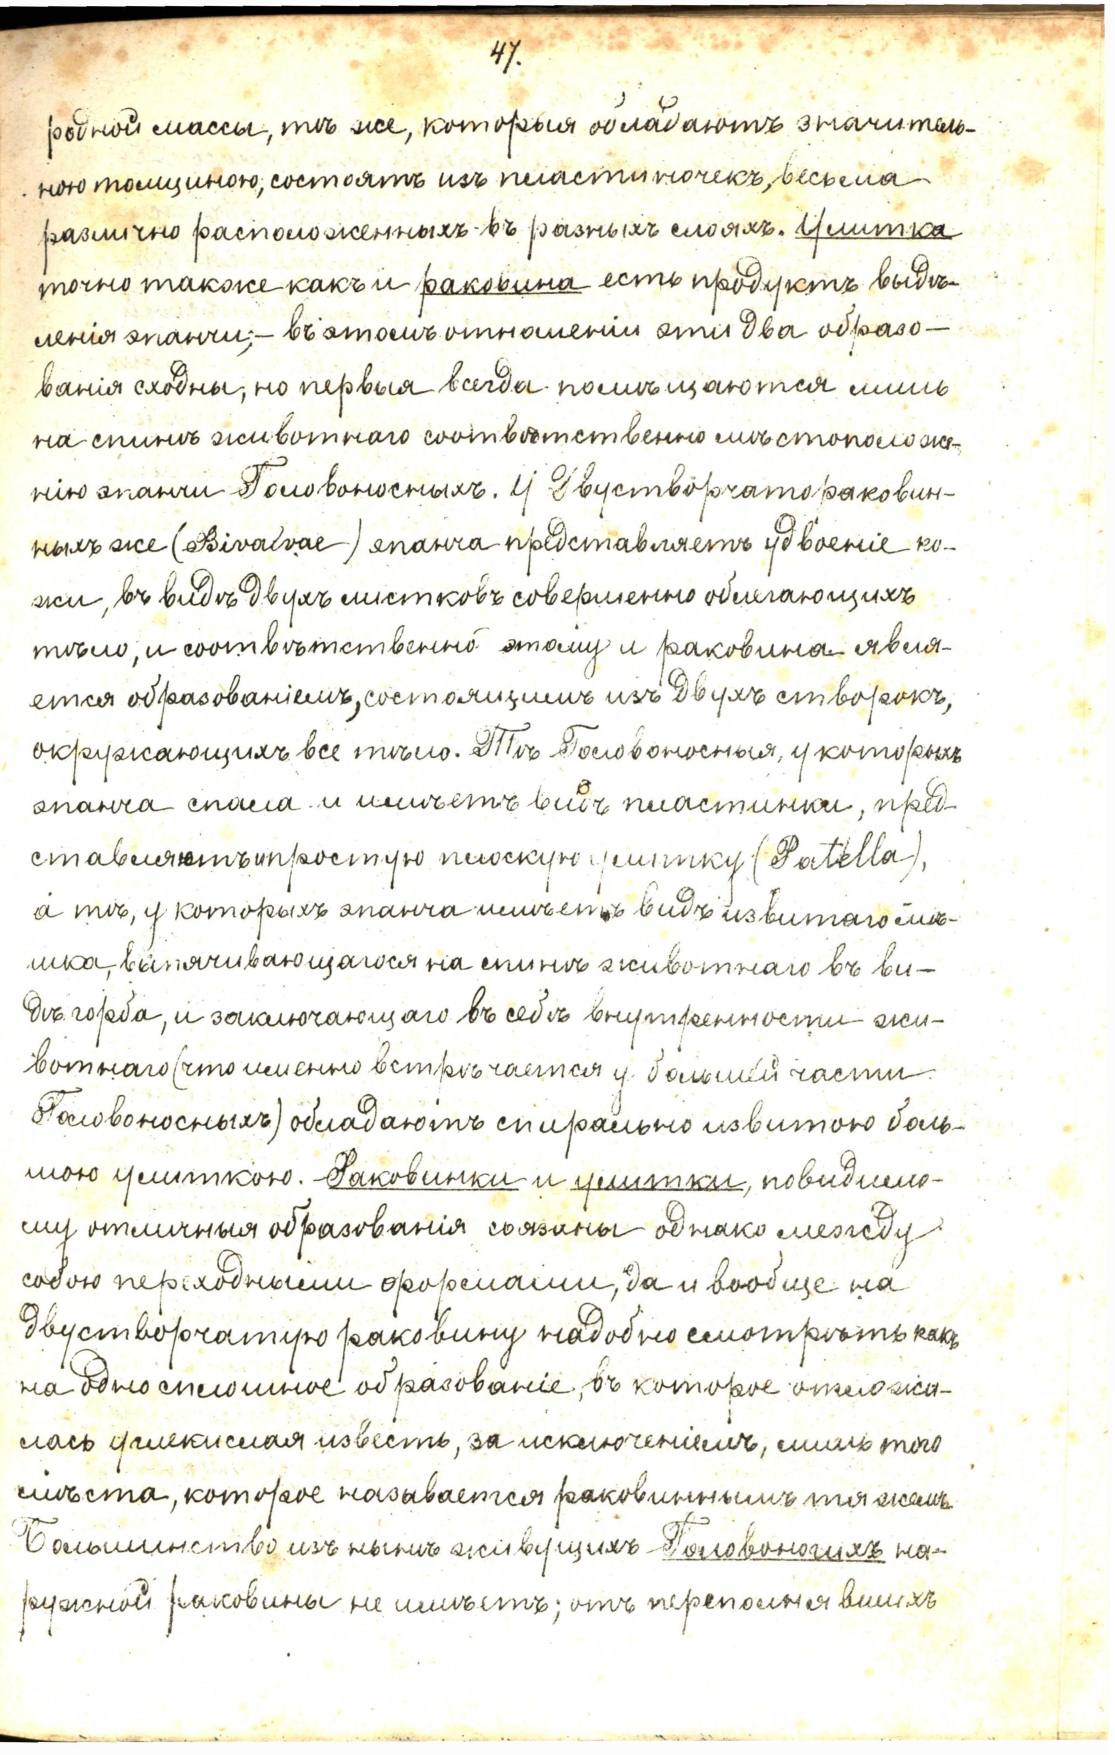 47.
родной массы, тѣ же, которыя обладаютъ значитель-
ною толщиною, состоятъ изъ пластиночекъ, весьма
различно расположенныхъ въ разныхъ слояхъ. Улитка
точно также какъ и раковина есть продуктъ выдѣ-
ленія эпанчи; – въ этомъ отношеніи эти два образо-
ванія сходны, но первыя всегда помѣщаются лишь
на спинѣ животнаго соотвѣтственно мѣстоположе-
нію эпанчи Головоносныхъ. У Двустворчатораковин-
ныхъ же (Bivalvae) эпанча представляетъ удвоеніе ко-
жи, въ видѣ двухъ листковъ совершенно облегающихъ
тѣло, и соотвѣтственно этому и раковина явля-
ется образованіемъ, состоящимъ изъ двухъ створокъ,
окружающихъ все тѣло. Тѣ Головоносныя, у которыхъ
эпанча спала и имѣетъ видъ пластинки, пред-
ставляютъ простую плоскую улитку (Patella),
а тѣ, у которыхъ эпанча имѣетъ видъ извитаго мѣ-
шка, выпячивающагося на спинѣ животнаго въ ви-
дѣ горба, и заключающаго въ себѣ внутренности жи-
вотнаго (что именно встрѣчается у большей части
Головоносныхъ) обладаютъ спирально извитою боль-
шою улиткою. Раковинки и улитки, повидимо-
му отличныя образованія связаны однако между
собою переходными формами, да и вообще на
двустворчатую раковину надобно смотрѣть какъ
на одно сплошное образованіе, въ которое отложи-
лась углекислая известь, за исключеніемъ, лишь того
мѣста, которое называется раковиннымъ тяжемъ
Большинство изъ нынѣ живущихъ Головоногихъ на-
ружной раковины не имѣетъ; отъ переполнявшихъ